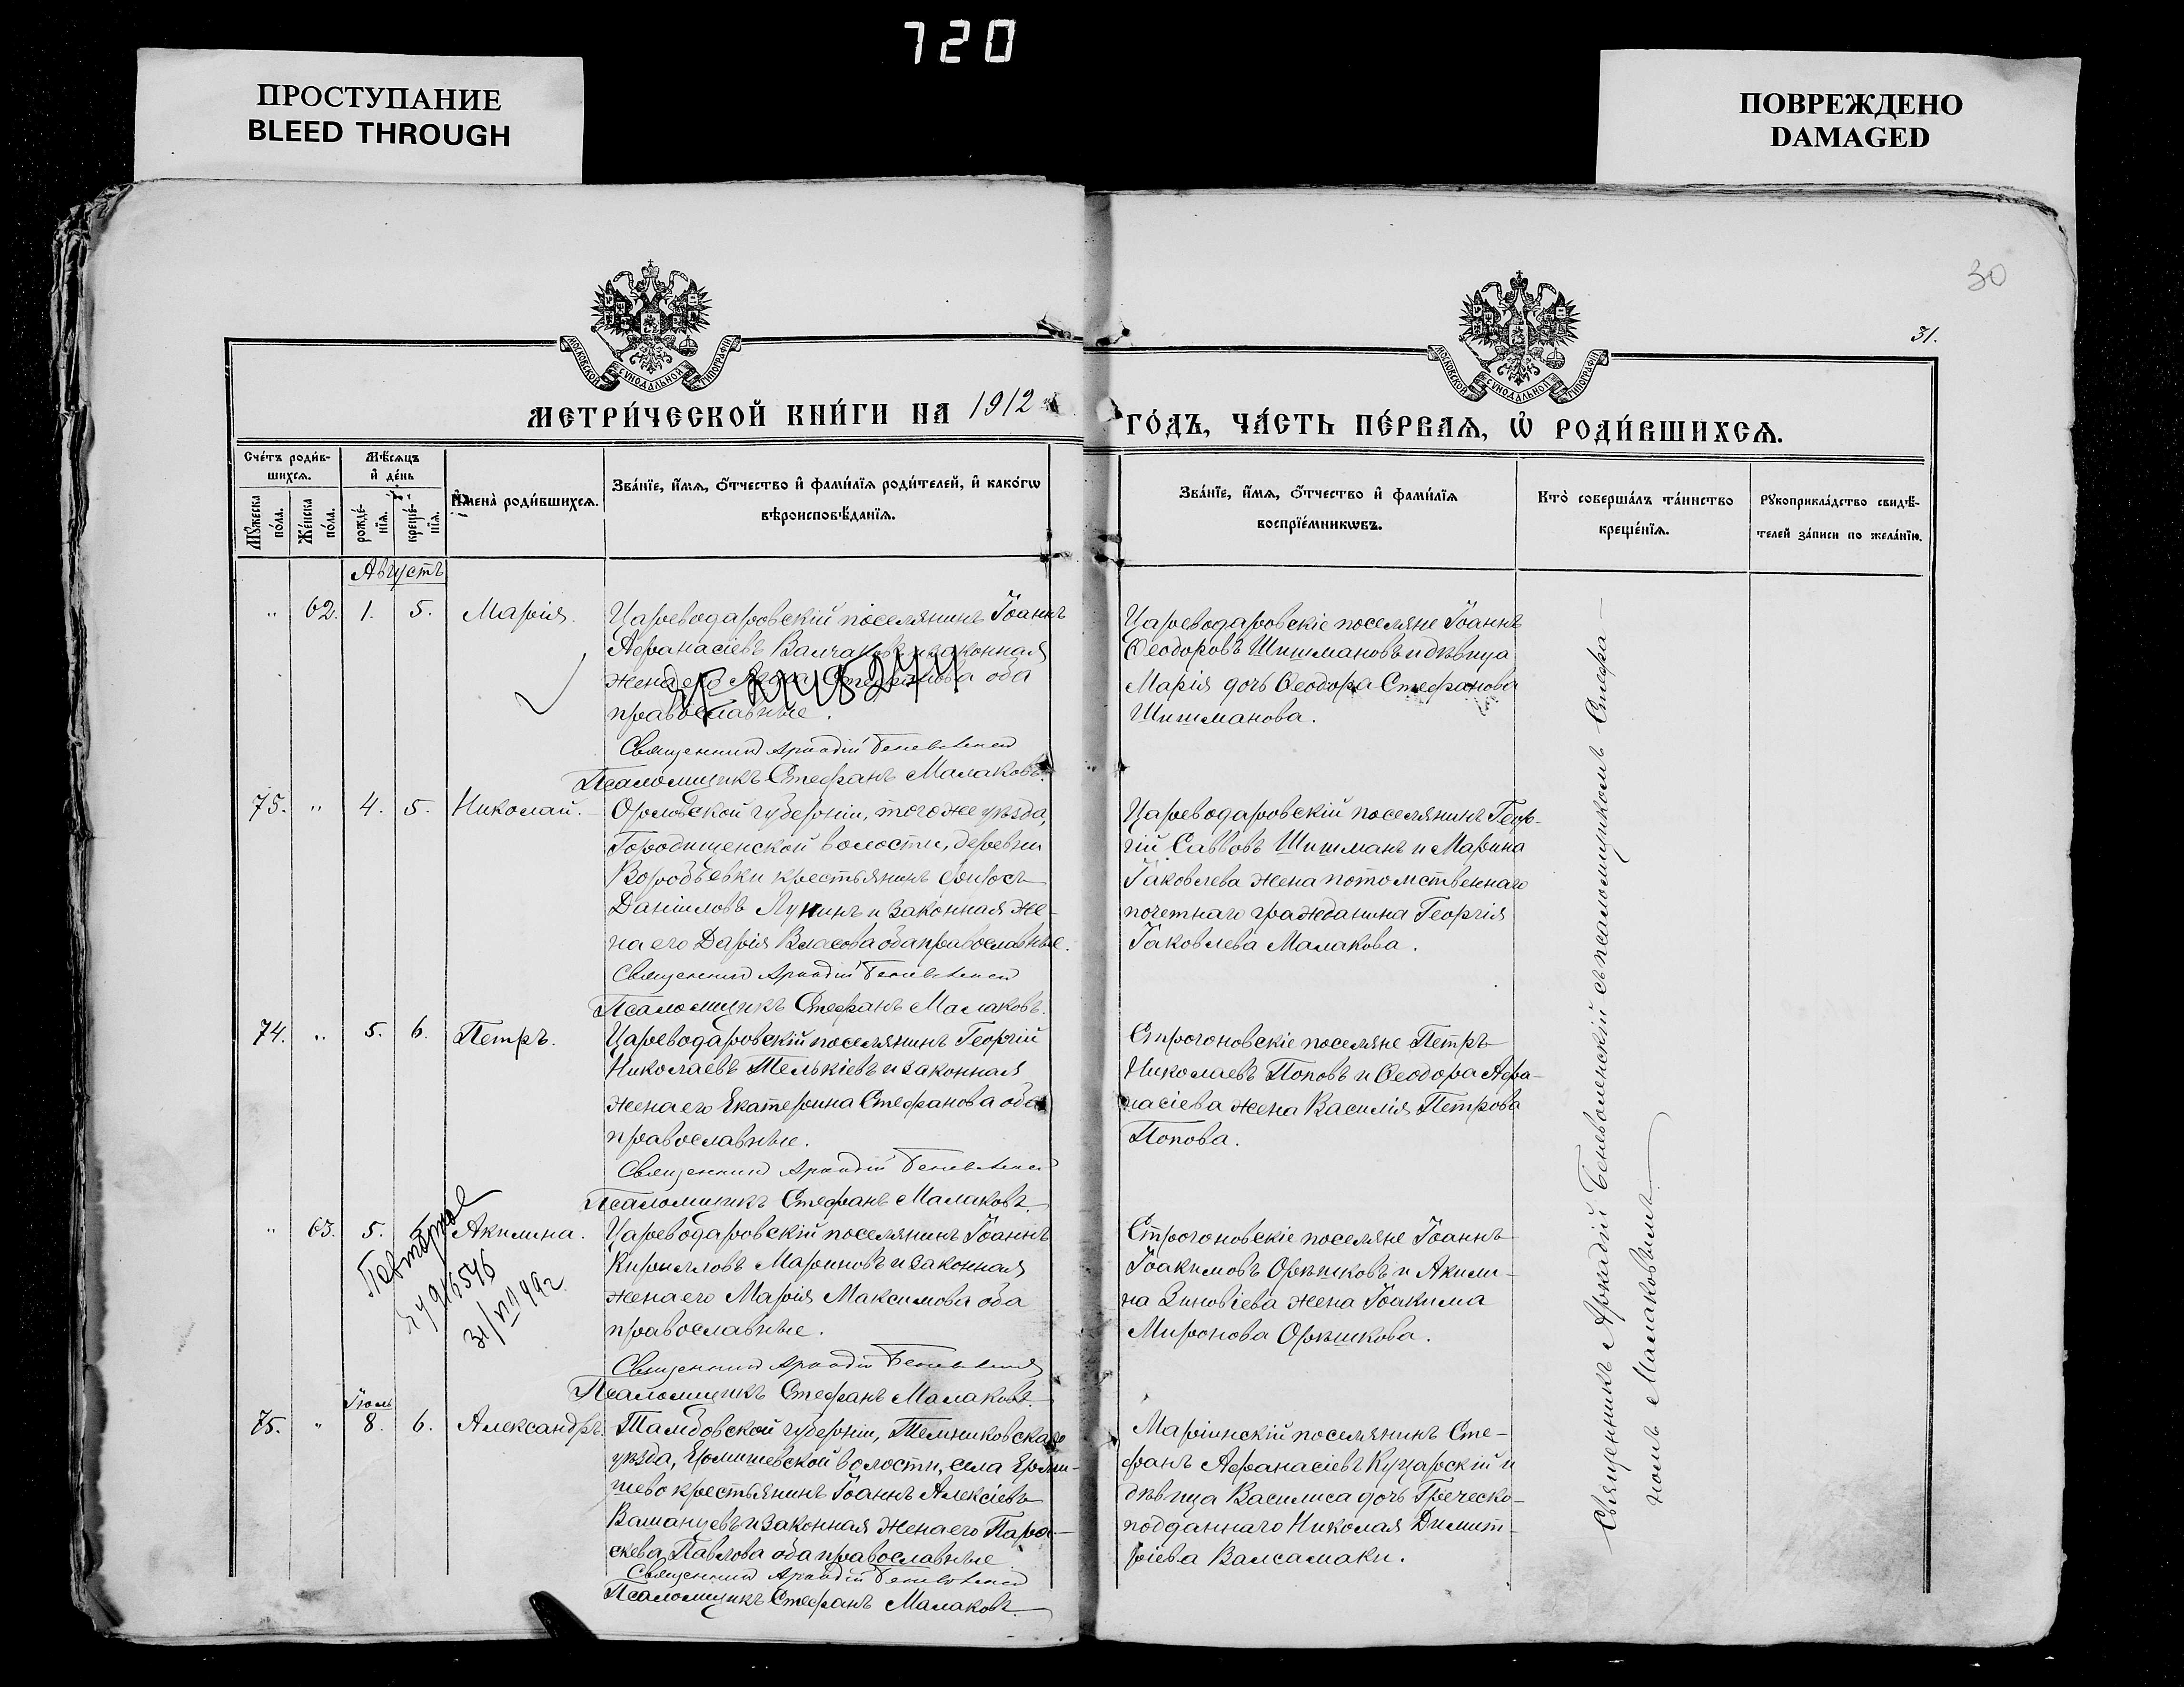 720
ПРОСТУПАНИЕ
BLEED THROUGH
ПОВРЕЖДЕНО
DAMAGED
30
31.
МОСКОВСКОЙ СѴНОДАЛЬНОЙ ТИПОГРАФІИ
МОСКОВСКОЙ СѴНОДАЛЬНОЙ ТИПОГРАФІИ
МЕТРИ́ЧЕСКОЙ КНИ́ГИ НА 1912
ГО́ДЪ, ЧА́СТЬ ПЕ́РВАѦ, Ѡ҆ РОДИ́ВШИХСѦ.
Сче́тъ роди́в-
шихсѧ.
Мꙋ́жеска
по́ла.
Же́нска
по́ла.
Мѣ́сѧцъ
и҆ де́нь
рожде́-
нїѧ.
креще́-
нїѧ.
И҆мена̀ роди́вшихсѧ.
Зва́нїе, и҆́мѧ, ѻ҆́тчество и҆ фами́лїѧ роди́телей, и҆ како́гѡ
вѣроисповѣ́данїѧ.
Зва́нїе, и҆́мѧ, ѻ҆́тчество и҆ фами́лїѧ
воспрїе́мникѡвъ.
Кто̀ соверша́лъ та́инство
креще́нїѧ.
Рꙋкоприкла́дство свидѣ́-
телей за́писи по жела́нїю.
Августъ
" 62. 1. 5. Марія.
Цареводаровскій поселянинъ Іоаннъ
Аѳанасіевъ и законная
жена его оба
православные.
Священникъ Аркадій Беневоленскій
Псаломщикъ Стефанъ Малаковъ.
Цареводаровскіе поселяне Іоаннъ
Ѳеодоровъ Шишмановъ и дѣвица
Марія дочь Ѳеодора Стефанова
Шишманова.
75. " 4. 5. Николай.
Орловской губерніи, того же уѣзда,
Городищенской волости, деревни
Воробьевки крестьянинъ
Даніиловъ Лунинъ и законная же-
на его Дарія Власова оба православные.
Священникъ Аркадій Беневоленскій
Псаломщикъ Стефанъ Малаковъ.
Цареводаровскій поселянинъ Геор-
гій Саввовъ Шишманъ и Марина
Іаковлева жена потомственнаго
почетнаго гражданина Георгія
Іаковлева Малакова.
74. " 5. 6. Петръ.
Цареводаровскій поселянинъ Георгій
Николаевъ Телькіевъ и законная
жена его Екатерина Стефанова оба
православные.
Священникъ Аркадій Беневоленскій
Псаломщикъ Стефанъ Малаковъ.
Строгоновскіе поселяне Петръ
Николаевъ Поповъ и Ѳеодора Аѳа-
насіева жена Василія Петрова
Попова.
" 63. 5. Акилина.
Повторное
Цареводаровскій поселянинъ Іоаннъ
Кирилловъ Мариновъ и законная
жена его Марія Максимова оба
православные.
Священникъ Аркадій Беневоленскій
Псаломщикъ Стефанъ Малаковъ.
Строгоновскіе поселяне Іоаннъ
Іоакимовъ Орѣшковъ и Акили-
на Зиновіева жена Іоакима
Миронова Орѣшкова.
Іюль
75. " 8. 6. Александръ.
Тамбовской губерніи, Темниковскаго
уѣзда, Ермишевской волости, села Ерми-
шево крестьянинъ Іоаннъ Алексіевъ
Вашанцевъ и законная жена его Пара-
скева Павлова оба православные
Священникъ Аркадій Беневоленскій
Псаломщикъ Стефанъ Малаковъ.
Маріинскій поселянинъ Сте-
фанъ Аѳанасіевъ Куцарскій и
дѣвица Василиса дочь Греческо-
подданнаго Николая Димит-
ріева Валсамаки.
Священникъ Аркадій Беневоленскій съ псаломщикомъ Стефа-
номъ Малаковымъ